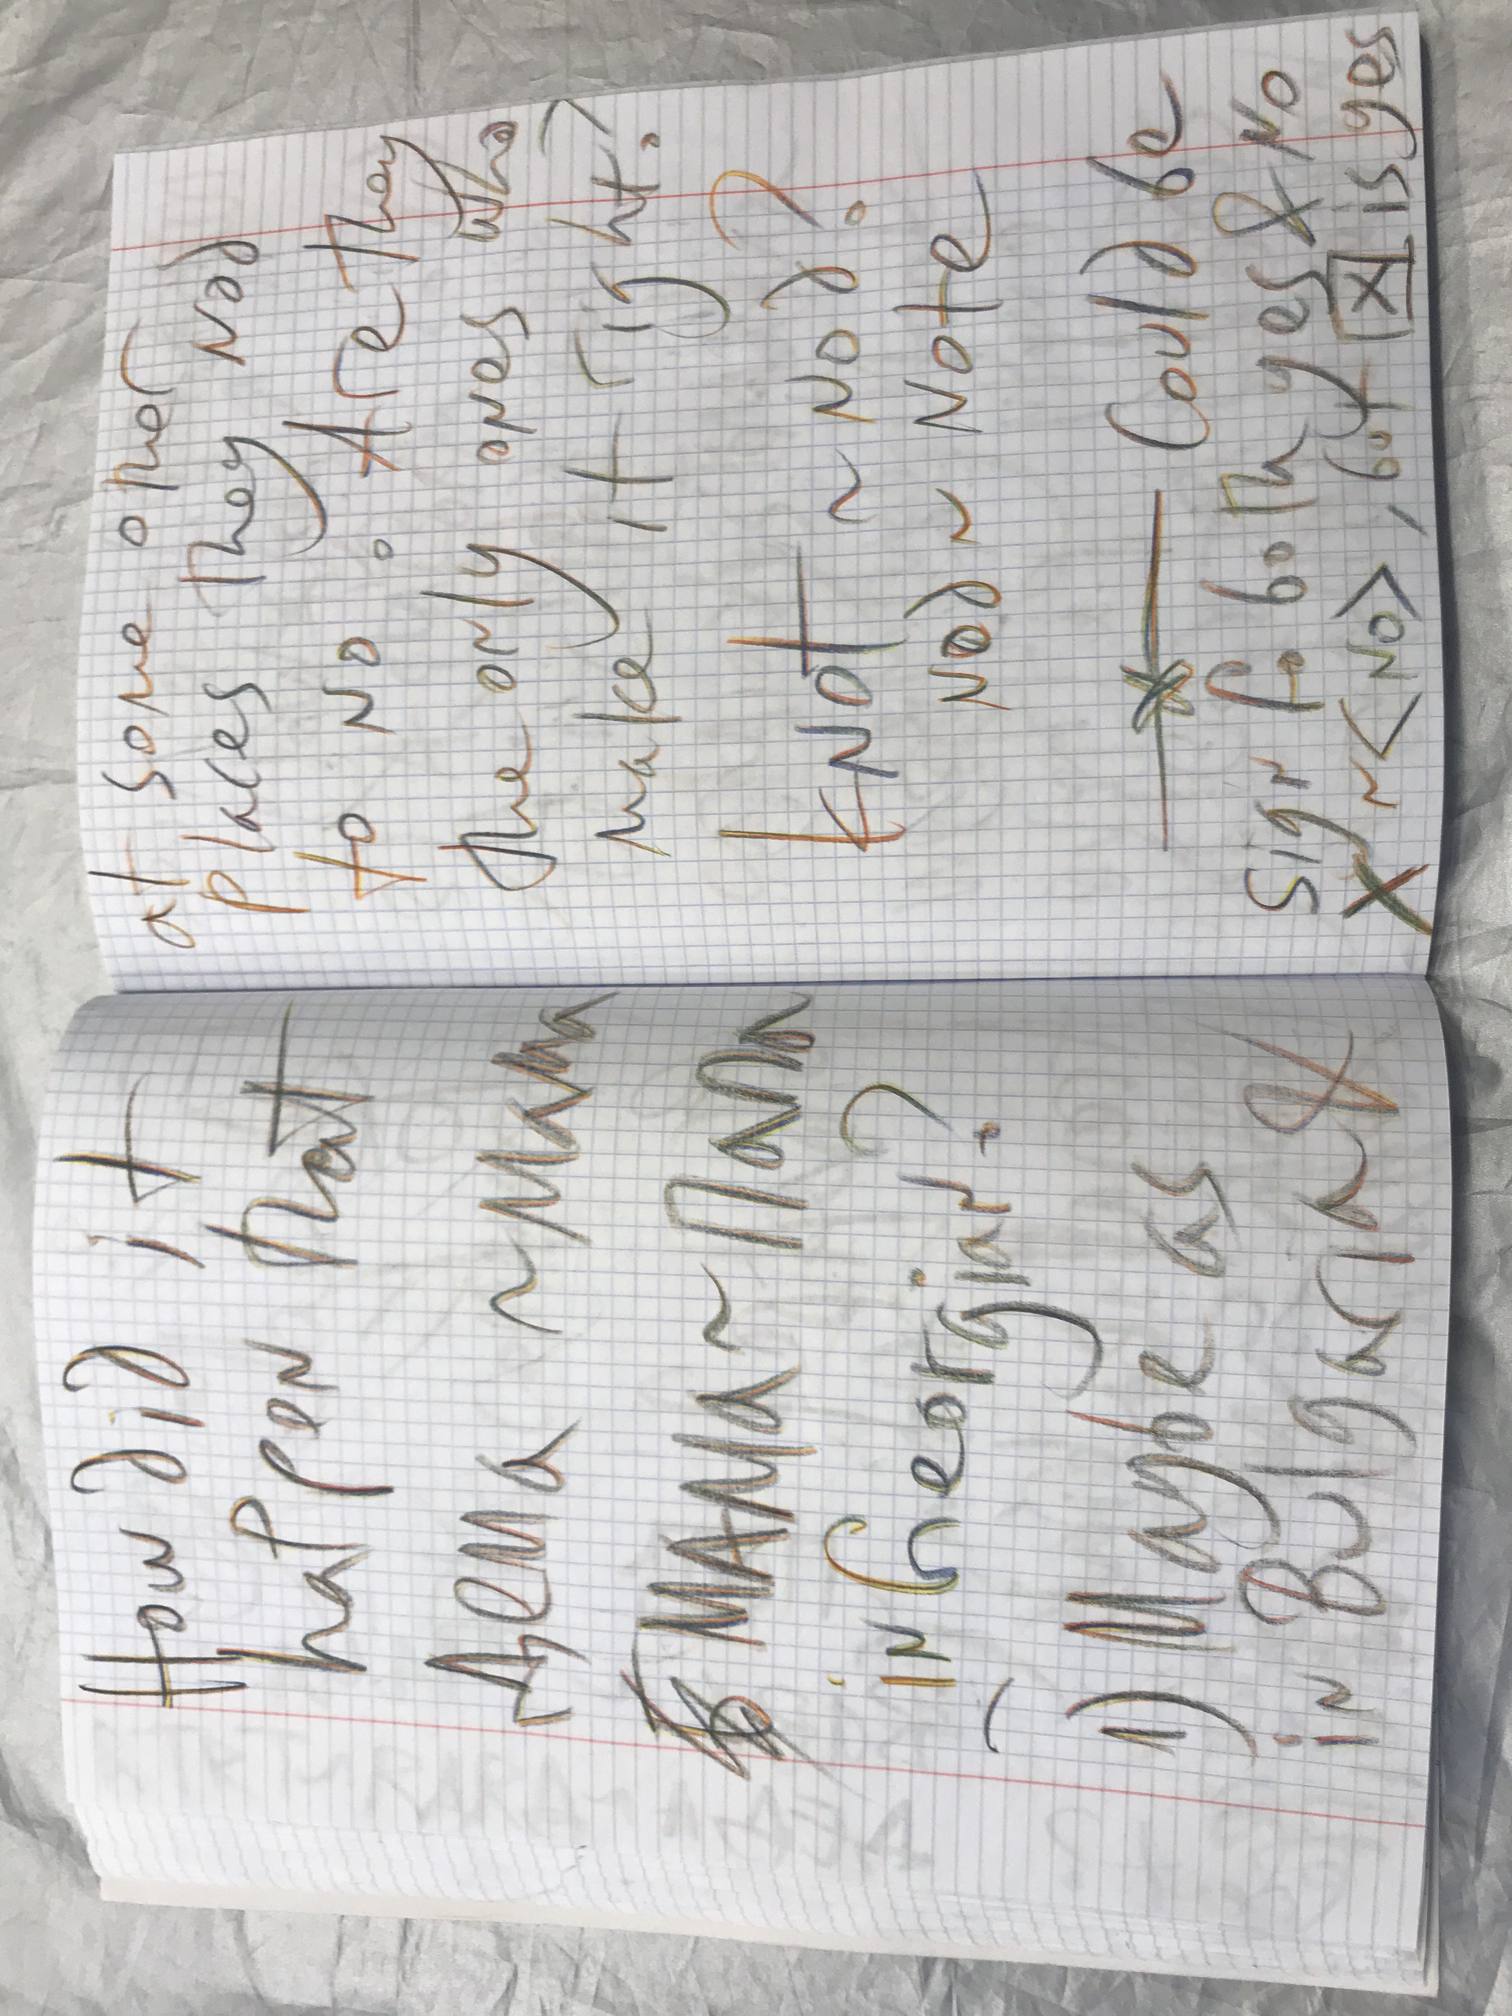 How did it
happen that
Дема ~ мама
& МАМА ~ папа
in Georgian?
1) Maybe as
in Bulgaria &
at some other
places they nod
to no. Are they
the only ones who
make it right?
kNot ~ Nod?
Nod ~ Note
Could be
sign fo both yes & No
X ~ <No>, but [X] is yes